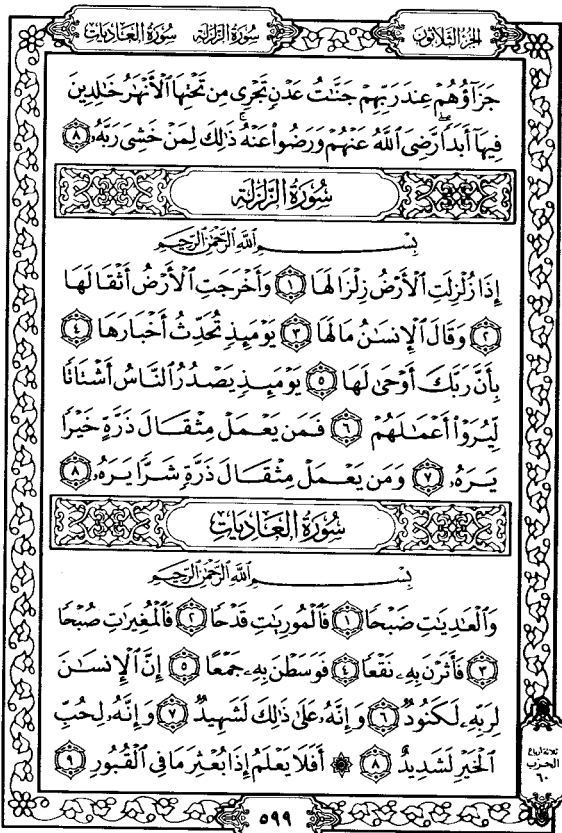 سُورَةُ العَادِيَات سُورَةُ الزَّلْزَلَة الجُزءُ الثَّلَاثُونَ
جَزَآؤُهُمْ عِندَ رَبِّهِمْ جَنَّٰتُ عَدْنٍ تَجْرِى مِن تَحْتِهَا ٱلْأَنْهَٰرُ خَٰلِدِينَ
فِيهَآ أَبَدًا ۖ رَّضِىَ ٱللَّهُ عَنْهُمْ وَرَضُوا۟ عَنْهُ ۚ ذَٰلِكَ لِمَنْ خَشِىَ رَبَّهُۥ ٨
سُورَةُ الزَّلْزَلَة
بِسْمِ ٱللَّهِ ٱلرَّحْمَٰنِ ٱلرَّحِيمِ
إِذَا زُلْزِلَتِ ٱلْأَرْضُ زِلْزَالَهَا ١ وَأَخْرَجَتِ ٱلْأَرْضُ أَثْقَالَهَا
٢ وَقَالَ ٱلْإِنسَٰنُ مَا لَهَا ٣ يَوْمَئِذٍ تُحَدِّثُ أَخْبَارَهَا ٤
بِأَنَّ رَبَّكَ أَوْحَىٰ لَهَا ٥ يَوْمَئِذٍ يَصْدُرُ ٱلنَّاسُ أَشْتَاتًا
لِّيُرَوْا۟ أَعْمَٰلَهُمْ ٦ فَمَن يَعْمَلْ مِثْقَالَ ذَرَّةٍ خَيْرًا
يَرَهُۥ ٧ وَمَن يَعْمَلْ مِثْقَالَ ذَرَّةٍ شَرًّا يَرَهُۥ ٨
سُورَةُ العَادِيَات
بِسْمِ ٱللَّهِ ٱلرَّحْمَٰنِ ٱلرَّحِيمِ
وَٱلْعَٰدِيَٰتِ ضَبْحًا ١ فَٱلْمُورِيَٰتِ قَدْحًا ٢ فَٱلْمُغِيرَٰتِ صُبْحًا
٣ فَأَثَرْنَ بِهِۦ نَقْعًا ٤ فَوَسَطْنَ بِهِۦ جَمْعًا ٥ إِنَّ ٱلْإِنسَٰنَ
لِرَبِّهِۦ لَكَنُودٌ ٦ وَإِنَّهُۥ عَلَىٰ ذَٰلِكَ لَشَهِيدٌ ٧ وَإِنَّهُۥ لِحُبِّ
ٱلْخَيْرِ لَشَدِيدٌ ٨ ۞ أَفَلَا يَعْلَمُ إِذَا بُعْثِرَ مَا فِى ٱلْقُبُورِ ٩
ثلاثة أرباع
الحزب
٦٠
٥٩٩